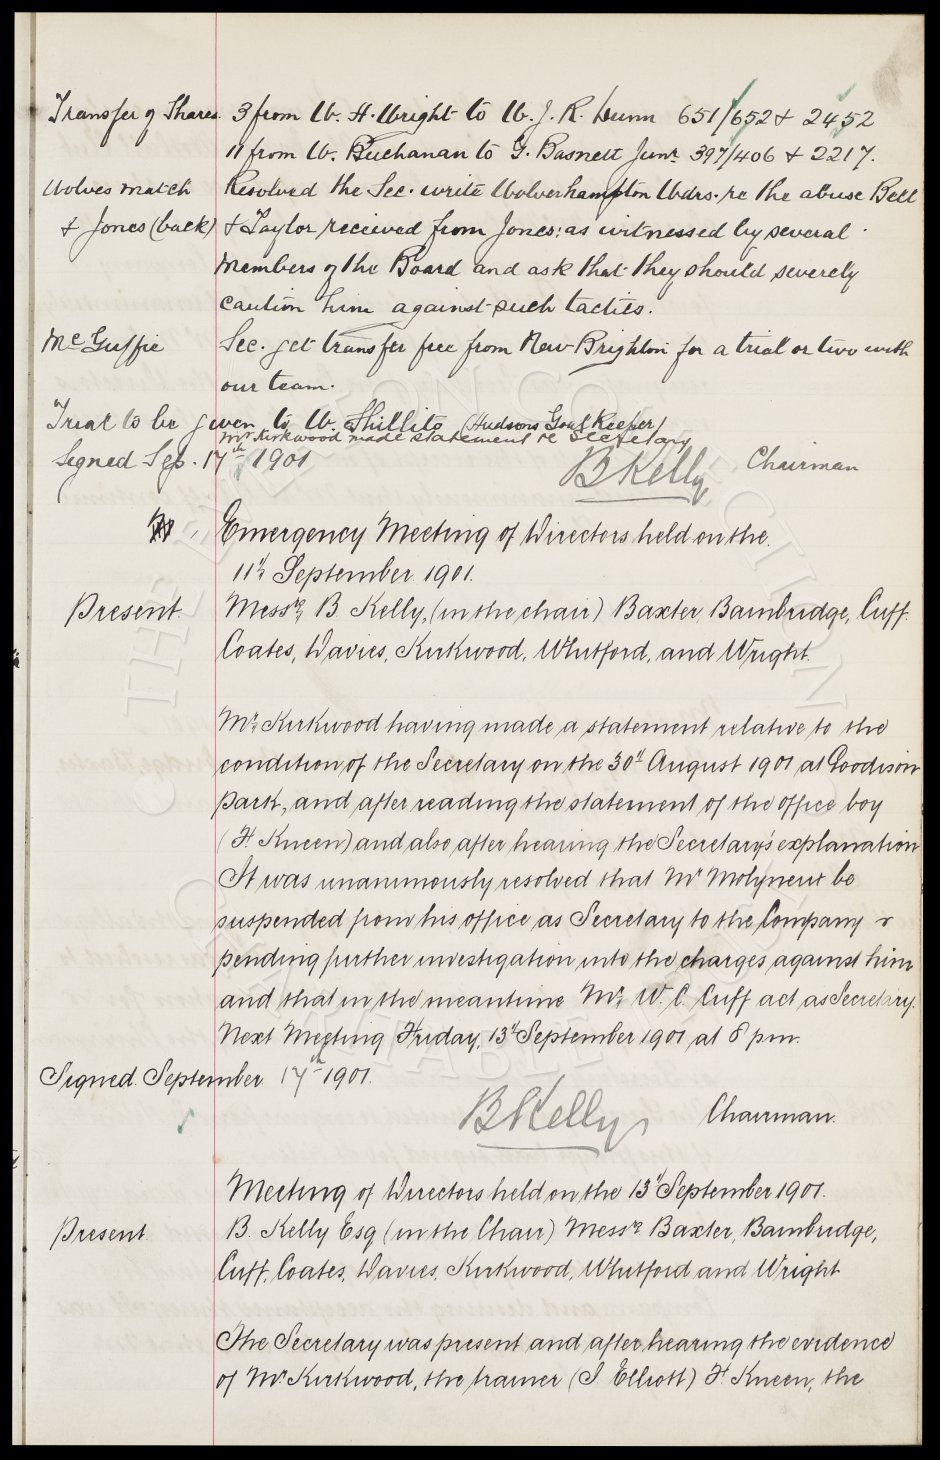 Transfer of Shares 3 from W. H. Wright to W. J. R. Dunn 651/652 & 2452
11 from W. Buchanan to G. Basnett Junr. 397/406 & 2217.
Wolves match Resolved the Sec. write Wolverhampton Wdrs. re the abuse Bell
& Jones (back) & Taylor received from Jones: as witnessed by several
Members of the Board and ask that they should severely
caution him against such tactics.
McGuffie Sec. get transfer free from New Brighton for a trial or two with
our team.
Trial to be given to W. Shillito (Hudsons Goal Keeper)
Mr Kirkwood made statement re Secretary
Signed Sep. 17th 1901 B Kelly Chairman
Emergency Meeting of Directors held on the
11th September 1901.
Present. Messrs B Kelly, (in the chair) Baxter, Bainbridge, Cuff
Coates, Davies, Kirkwood, Whitford, and Wright.
Mr Kirkwood having made a statement relative to the
condition of the Secretary on the 30th August 1901 at Goodison
Park, and after reading the statement of the office boy
(F. Kneen) and also after hearing the Secretary's explanation
It was unanimously resolved that Mr Molyneux be
suspended from his office as Secretary to the Company
pending further investigation into the charges against him
and that in the meantime Mr W. C. Cuff act as Secretary.
Next Meeting Friday, 13th September 1901 at 8 pm.
Signed. September 17th 1901.
B Kelly, Chairman.
Meeting of Directors held on the 13th September 1901.
Present B. Kelly Esq (in the Chair) Messrs Baxter, Bainbridge,
Cuff, Coates, Davies, Kirkwood, Whitford and Wright
The Secretary was present and after hearing the evidence
of Mr Kirkwood, the trainer (J Elliott) F. Kneen, the